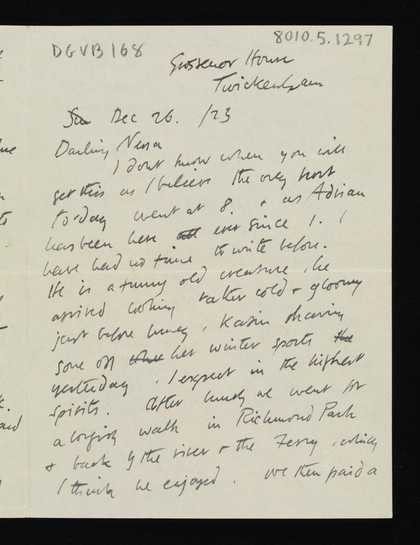 DGVB 168
8010.5.1297
Grosvenor House
Twickenham
Sun Dec 26. /23
Darling Nessa
I don't know when you will
get this as I believe the only post
to-day went at 8. & as Adrian
has been here all ever since 1. I
have had no time to write before.
He is a funny old creature, he
arrived looking rather cold & gloomy
just before lunch, Karin having
gone off her winter sports the
yesterday, I expect in the highest
spirits. After lunch we went for
a longish walk in Richmond Park
& back by the river & the Ferry, which
I think he enjoyed. We then paid a